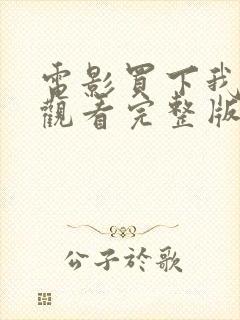 電影買下我
觀看完整版
公子於歌